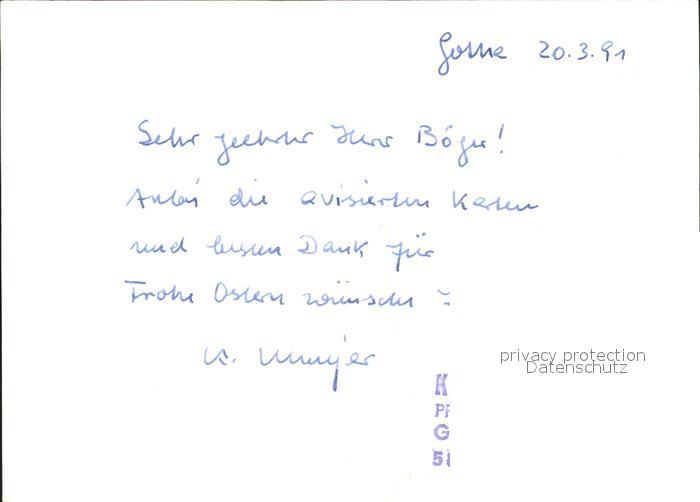 Gotha 20.3.91
Sehr geehrter Herr Böger!
Anbei die avisierten Karten
und besten Dank für
Frohe Ostern wünscht
K.
privacy protection
Datenschutz
K
PF
G
58